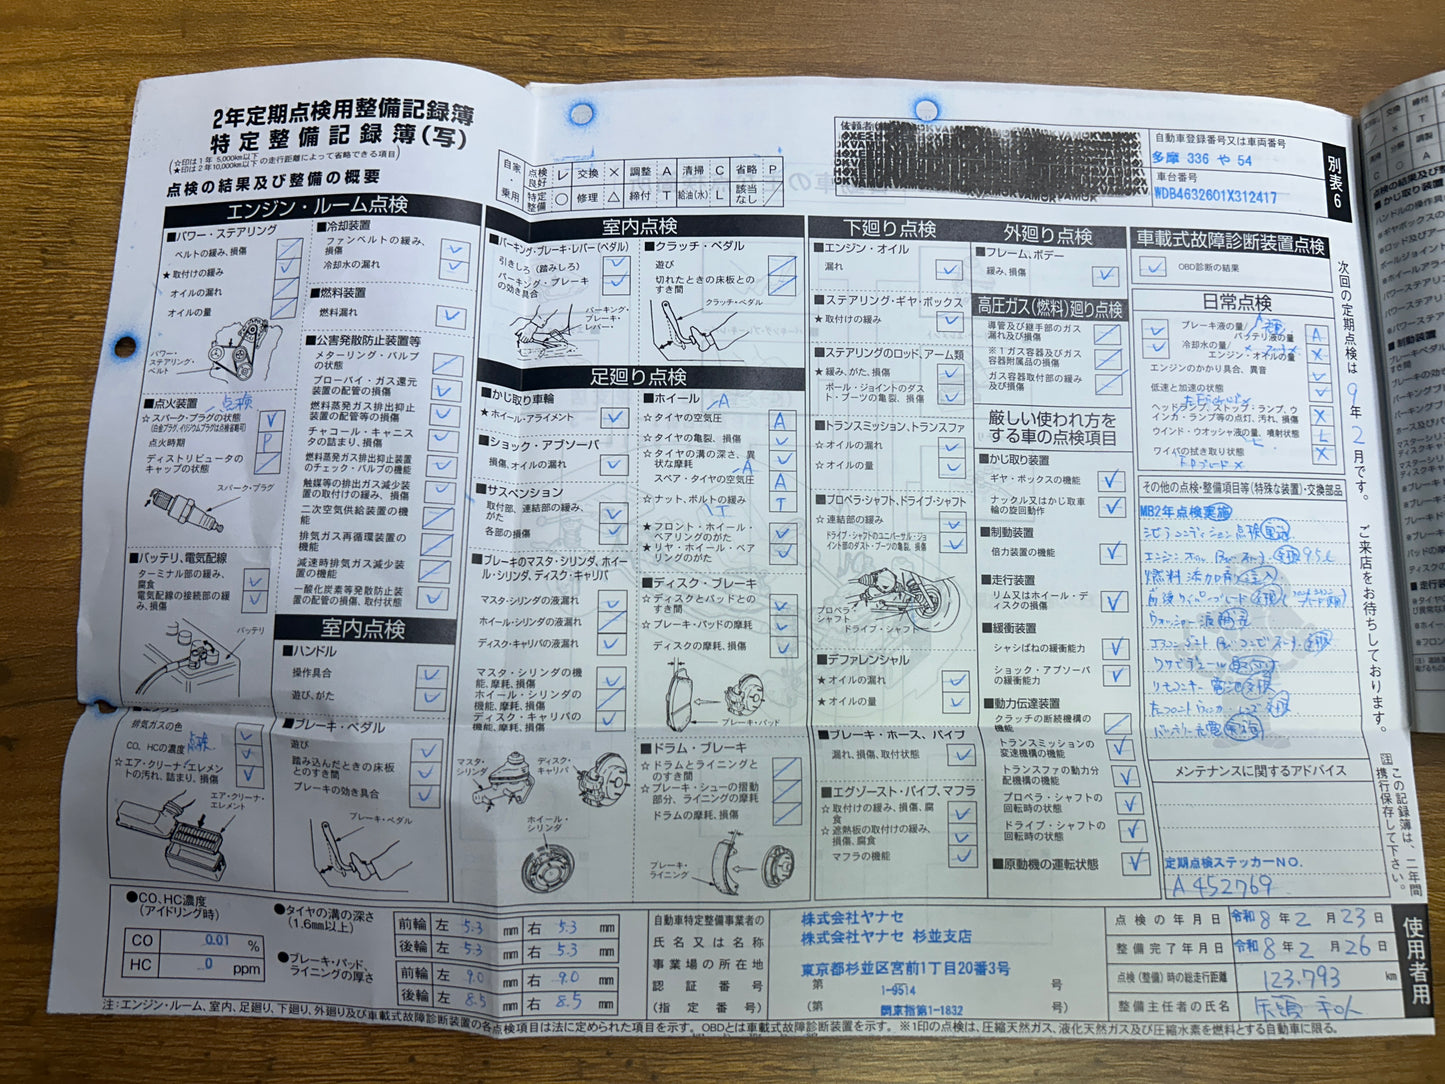 2年定期点検用整備記録簿
特定整備記録簿(写)
☆印は1年 5,000km以下
★印は2年10,000km以下
の走行距離によって省略できる項目
点検の結果及び整備の概要
自家用乗用
点検良好 レ 交換 × 調整 A 清掃 C 省略 P
特定整備 ○ 修理 △ 締付 T 給油(水) L 該当なし /
依頼者
自動車登録番号又は車両番号
多摩 336 や 54
車台番号
WDB4632601X312417
別表6
エンジン・ルーム点検
■パワー・ステアリング
ベルトの緩み、損傷
★取付けの緩み
オイルの漏れ
オイルの量
パワー・ステアリング・ベルト
■点火装置 点検
☆スパーク・プラグの状態
(白金プラグ、イリジウムプラグは点検省略可)
点火時期 P
ディストリビュータのキャップの状態
スパーク・プラグ
■バッテリ、電気配線
ターミナル部の緩み、腐食
電気配線の接続部の緩み、損傷
バッテリ
排気ガスの色
CO、HCの濃度 点検
☆エア・クリーナ・エレメントの汚れ、詰まり、損傷
エア・クリーナ・エレメント
■冷却装置
ファンベルトの緩み、損傷
冷却水の漏れ
■燃料装置
燃料漏れ
■公害発散防止装置等
メターリング・バルブの状態
ブローバイ・ガス還元装置の配管の損傷
燃料蒸発ガス排出抑止装置の配管等の損傷
チャコール・キャニスタの詰まり、損傷
燃料蒸発ガス排出抑止装置のチェック・バルブの機能
触媒等の排出ガス減少装置の取付けの緩み、損傷
二次空気供給装置の機能
排気ガス再循環装置の機能
減速時排気ガス減少装置の機能
一酸化炭素等発散防止装置の配管の損傷、取付状態
室内点検
■ハンドル
操作具合
遊び、がた
■ブレーキ・ペダル
遊び
踏み込んだときの床板とのすき間
ブレーキの効き具合
ブレーキ・ペダル
室内点検
■パーキング・ブレーキ・レバー(ペダル)
引きしろ(踏みしろ)
パーキング・ブレーキの効き具合
パーキング・ブレーキ・レバー
■クラッチ・ペダル
遊び
切れたときの床板とのすき間
クラッチ・ペダル
足廻り点検
■かじ取り車輪
★ホイール・アライメント
■ショック・アブソーバ
損傷、オイルの漏れ
■サスペンション
取付部、連結部の緩み、がた
各部の損傷
■ブレーキのマスタ・シリンダ、ホイール・シリンダ、ディスク・キャリパ
マスタ・シリンダの液漏れ
ホイール・シリンダの液漏れ
ディスク・キャリパの液漏れ
マスタ・シリンダの機能、摩耗、損傷
ホイール・シリンダの機能、摩耗、損傷
ディスク・キャリパの機能、摩耗、損傷
マスタ・シリンダ
ディスク・キャリパ
ホイール・シリンダ
■ホイール
☆タイヤの空気圧 A
☆タイヤの亀裂、損傷
☆タイヤの溝の深さ、異状な摩耗
スペア・タイヤの空気圧 A
☆ナット、ボルトの緩み T
★フロント・ホイール・ベアリングのがた
★リヤ・ホイール・ベアリングのがた
■ディスク・ブレーキ
☆ディスクとパッドとのすき間
☆ブレーキ・パッドの摩耗
ディスクの摩耗、損傷
ブレーキ・パッド
■ドラム・ブレーキ
☆ドラムとライニングとのすき間
☆ブレーキ・シューの摺動部分、ライニングの摩耗
ドラムの摩耗、損傷
ブレーキ・ライニング
下廻り点検
■エンジン・オイル
漏れ
■ステアリング・ギヤ・ボックス
★取付けの緩み
■ステアリングのロッド、アーム類
★緩み、がた、損傷
ボール・ジョイントのダスト・ブーツの亀裂、損傷
■トランスミッション、トランスファ
☆オイルの漏れ
☆オイルの量
■プロペラ・シャフト、ドライブ・シャフト
☆連結部の緩み
ドライブ・シャフトのユニバーサル・ジョイント部のダスト・ブーツの亀裂、損傷
プロペラ・シャフト
ドライブ・シャフト
■デファレンシャル
★オイルの漏れ
★オイルの量
■ブレーキ・ホース、パイプ
漏れ、損傷、取付状態
■エグゾースト・パイプ、マフラ
☆取付けの緩み、損傷、腐食
☆遮熱板の取付けの緩み、損傷、腐食
マフラの機能
外廻り点検
■フレーム、ボデー
緩み、損傷
高圧ガス(燃料)廻り点検
導管及び継手部のガス漏れ及び損傷
※1ガス容器及びガス容器附属品の損傷
ガス容器取付部の緩み及び損傷
厳しい使われ方をする車の点検項目
■かじ取り装置
ギヤ・ボックスの機能
ナックル又はかじ取車輪の旋回動作
■制動装置
倍力装置の機能
■走行装置
リム又はホイール・ディスクの損傷
■緩衝装置
シャシばねの緩衝力
ショック・アブソーバの緩衝能力
■動力伝達装置
クラッチの断続機構の機能
トランスミッションの変速機構の機能
トランスファの動力分配機構の機能
プロペラ・シャフトの回転時の状態
ドライブ・シャフトの回転時の状態
■原動機の運転状態
車載式故障診断装置点検
OBD診断の結果
日常点検
ブレーキ液の量/バッテリ液の量 A
冷却水の量/エンジン・オイルの量 X
エンジンのかかり具合、異音
低速と加速の状態
ヘッドランプ、ストップ・ランプ、ウインカ・ランプ等の点灯、汚れ、損傷 X
ウインド・ウオッシャ液の量、噴射状態 L
ワイパの拭き取り状態 X
その他の点検・整備項目等(特殊な装置)・交換部品
MB2年点検実施
メンテナンスに関するアドバイス
定期点検ステッカーNO.
A452769
次回の定期点検は 9年 2月です。 ご来店をお待ちしております。
注 この記録簿は、二年間携行保存して下さい。
使用者用
●CO、HC濃度(アイドリング時)
CO 0.01 %
HC 0 ppm
●タイヤの溝の深さ(1.6mm以上)
前輪 左 5.3 mm 右 5.3 mm
後輪 左 5.3 mm 右 5.3 mm
●ブレーキ・パッド、ライニングの厚さ
前輪 左 9.0 mm 右 9.0 mm
後輪 左 8.5 mm 右 8.5 mm
自動車特定整備事業者の氏名又は名称
事業場の所在地
認証番号
(指定番号)
株式会社ヤナセ
株式会社ヤナセ 杉並支店
東京都杉並区宮前1丁目20番3号
第 1-9514 号
(第 関東指第1-1832 号)
点検の年月日 令和 8年 2月 23日
整備完了年月日 令和 8年 2月 26日
点検(整備)時の総走行距離 123,793 km
整備主任者の氏名
注:エンジン・ルーム、室内、足廻り、下廻り、外廻り及び車載式故障診断装置の各点検項目は法に定められた項目を示す。OBDとは車載式故障診断装置を示す。※1印の点検は、圧縮天然ガス、液化天然ガス及び圧縮水素を燃料とする自動車に限る。